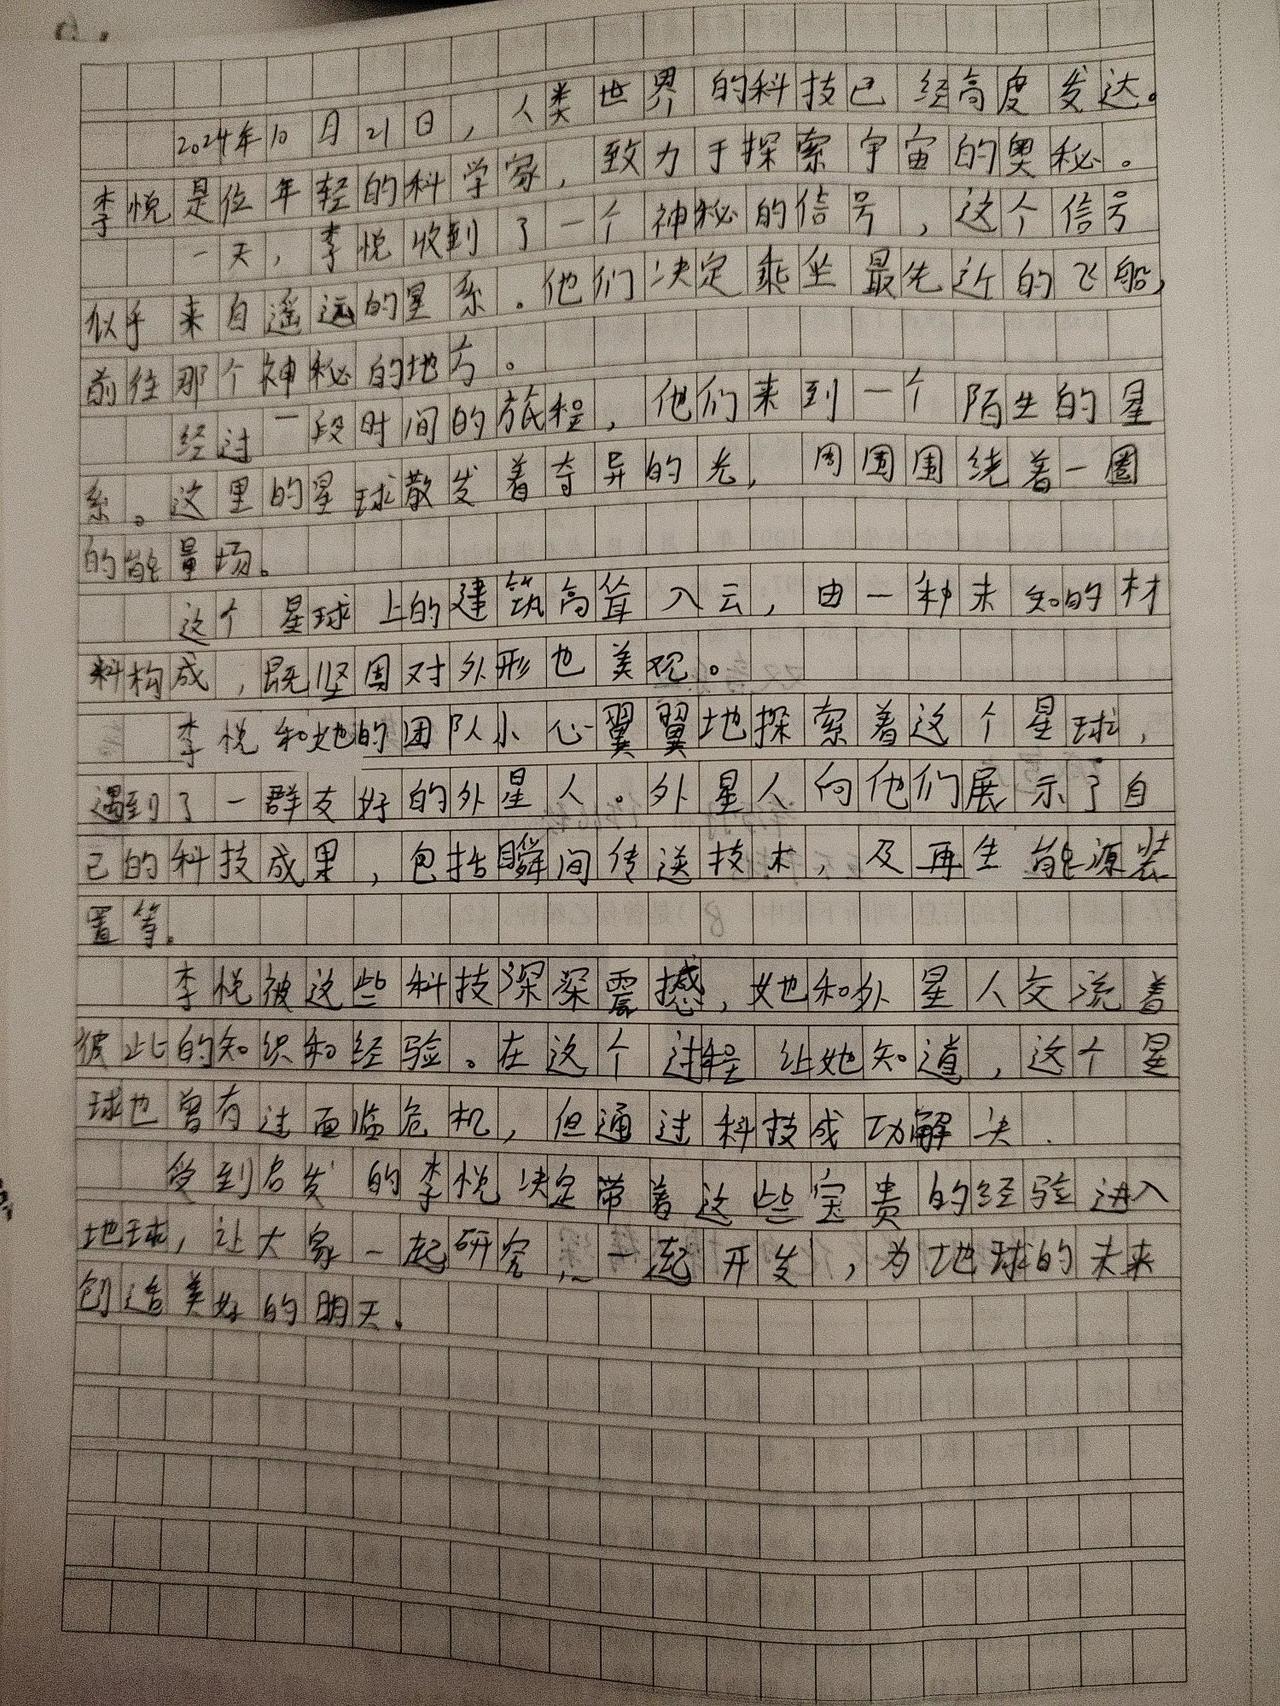 2024年10月21日，人类世界的科技已经高度发达。
李悦是位年轻的科学家，致力于探索宇宙的奥秘。
一天，李悦收到了一个神秘的信号，这个信号
似乎来自遥远的星系。他们决定乘坐最先近的飞船，
前往那个神秘的地方。
经过一段时间的旅程，他们来到一个陌生的星
系。这里的星球散发着夺异的光，周围围绕着一圈
的能量场。
这个星球上的建筑高耸入云，由一种未知的材
料构成，既坚固对外形也美观。
李悦和她的团队小心翼翼地探索着这个星球，
遇到了一群友好的外星人。外星人向他们展示了自
己的科技成果，包括瞬间传送技术，及再生能源装
置等。
李悦被这些科技深深震撼，她和外星人交流着
彼此的知识和经验。在这个过程让她知道，这个星
球也曾有过面临危机，但通过科技成功解决.
受到启发的李悦决定带着这些宝贵的经验进入
地球，让大家一起研究，一起开发，为地球的未来
创造美好的明天。